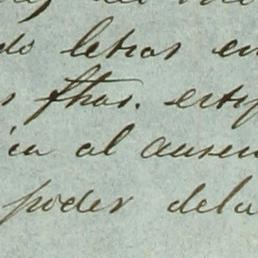 do letras en
s fhas. esti
ia al ausen
poder dela